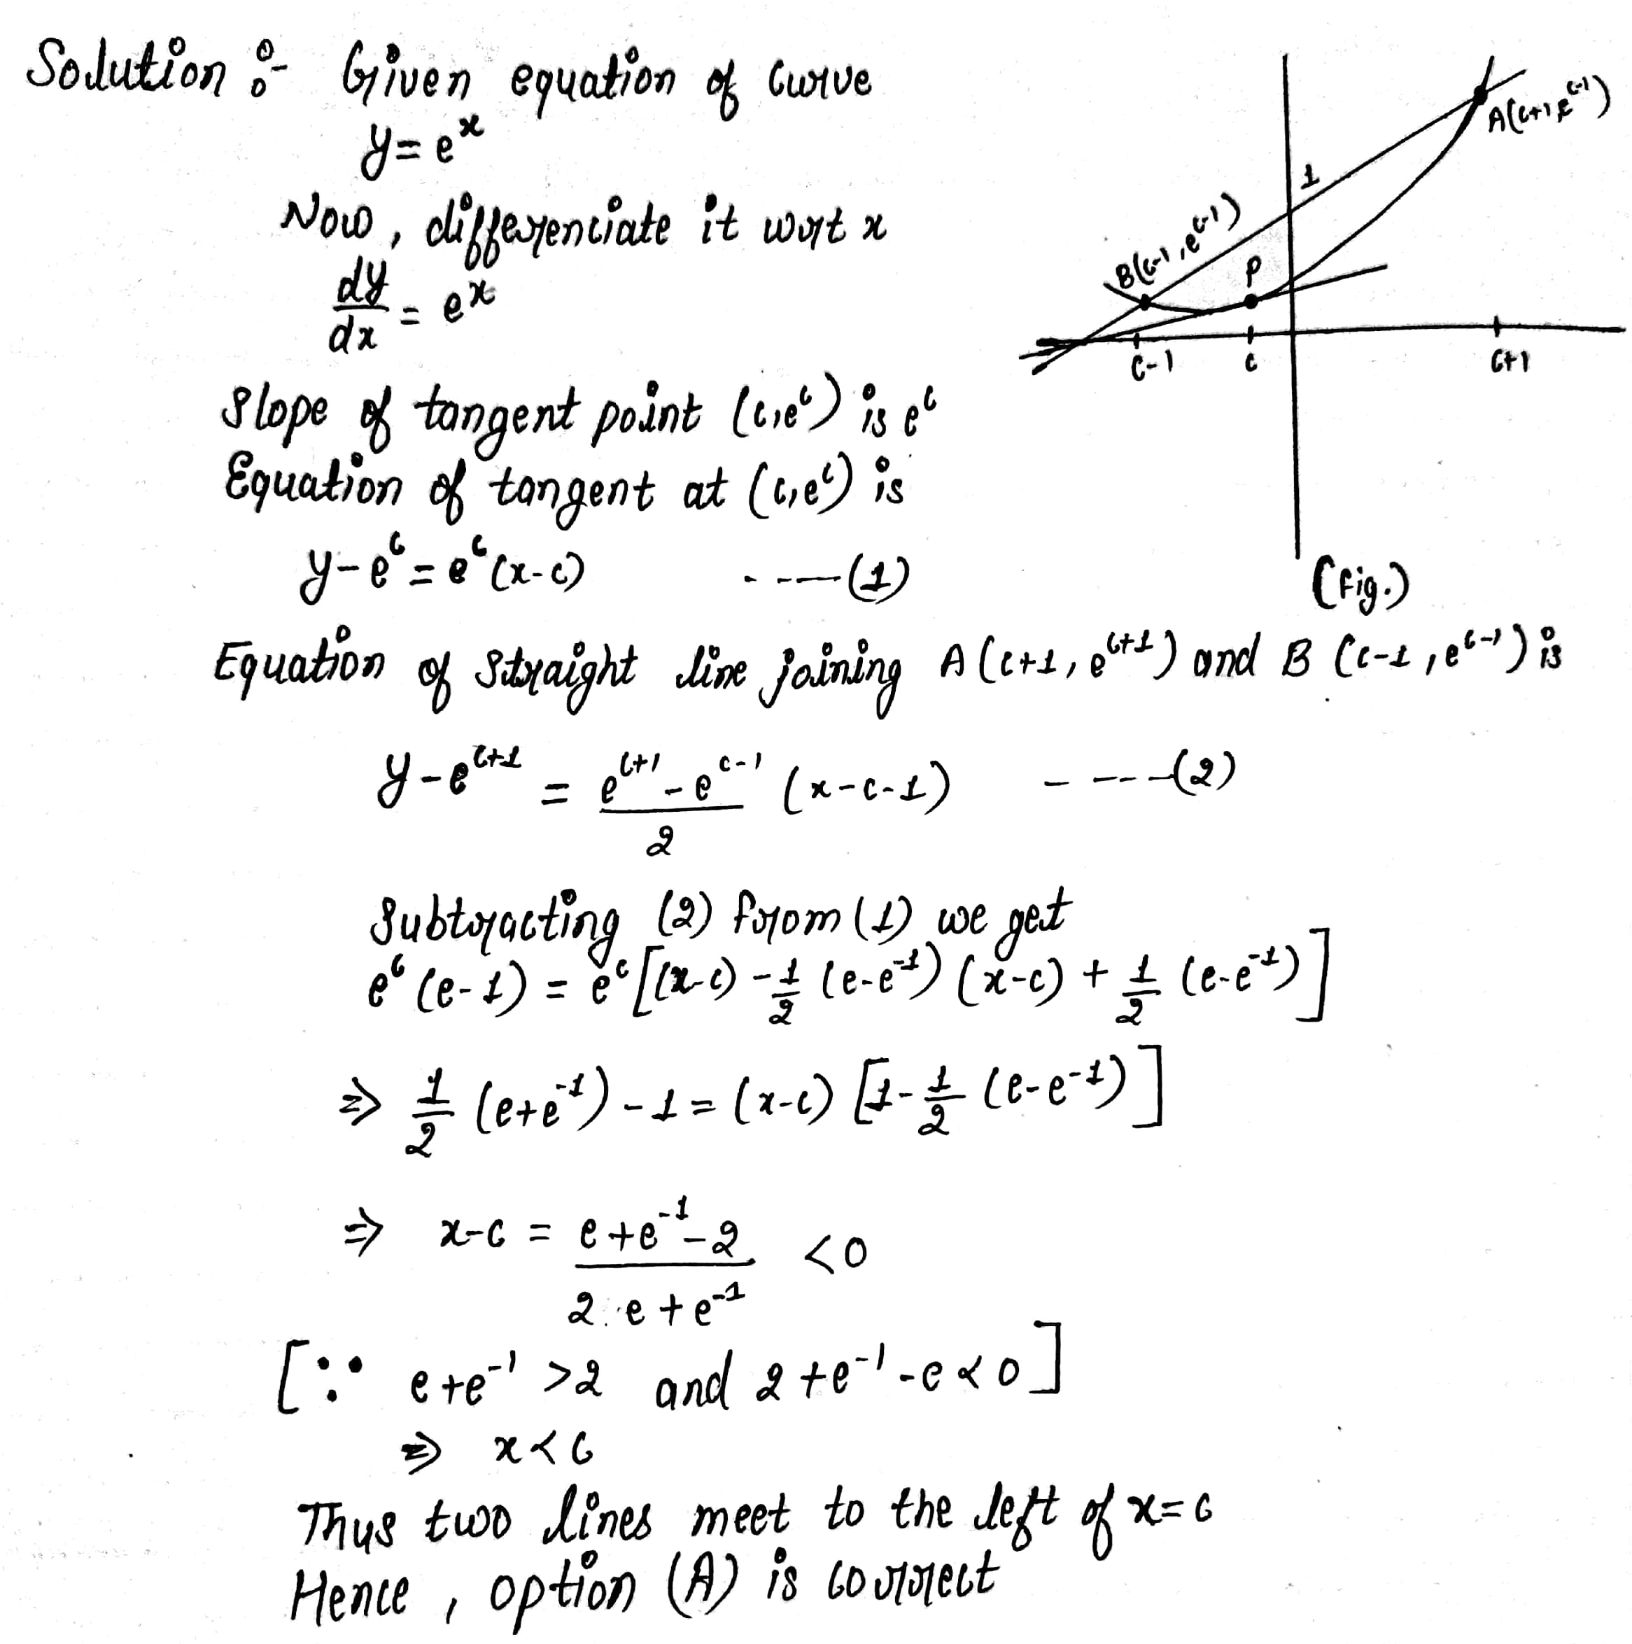 Solution :- Given equation of curve
y = e^x
Now, differenciate it wrt x
dy/dx = e^x
Slope of tangent point (c, e^c) is e^c
Equation of tangent at (c, e^c) is
y - e^c = e^c (x-c) ----(1)
Equation of straight line joining A (c+1, e^(c+1)) and B (c-1, e^(c-1)) is
y - e^(c+1) = (e^(c+1) - e^(c-1))/2 (x-c-1) ----(2)
Subtracting (2) from (1) we get
e^c (e-1) = e^c [(x-c) - 1/2 (e-e^-1) (x-c) + 1/2 (e-e^-1)]
⇒ 1/2 (e+e^-1) - 1 = (x-c) [1 - 1/2 (e-e^-1)]
⇒ x-c = (e+e^-1-2)/(2 e+e^-1) <0
[∵ e+e^-1 >2 and 2+e^-1-e <0]
⇒ x<c
Thus two lines meet to the left of x=c
Hence, option (A) is correct
A(c+1, e^(c-1))
1
B(c-1, e^(c-1))
P
c-1
c
c+1
(fig.)